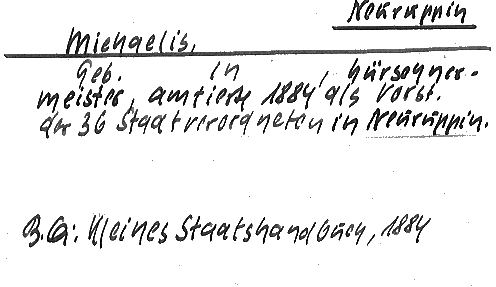 Neuruppin
Michaelis,
Geb. in , Kürschner-
meister, amtierte 1884 als Vorst.
der 36 Staatverordneten in Neuruppin.
B.Q.: Kleines Staatshandbuch, 1884